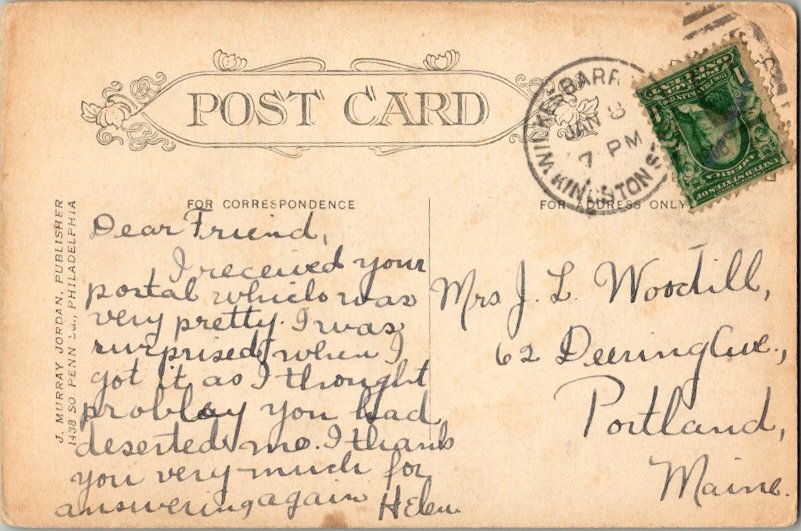 POST CARD
WILKES-BARRE
JAN 8
7 PM
KINGSTON
FOR CORRESPONDENCE
FOR ADDRESS ONLY
J. MURRAY JORDAN, PUBLISHER
1438 SO. PENN SQ., PHILADELPHIA
Dear Friend,
I received your
postal which was
very pretty. I was
surprised when I
got it as I thought
problay you had
deserted me. I thank
you very much for
answering again Helen
Mrs J. L. Woodill,
62 Deering Ave.,
Portland,
Maine.